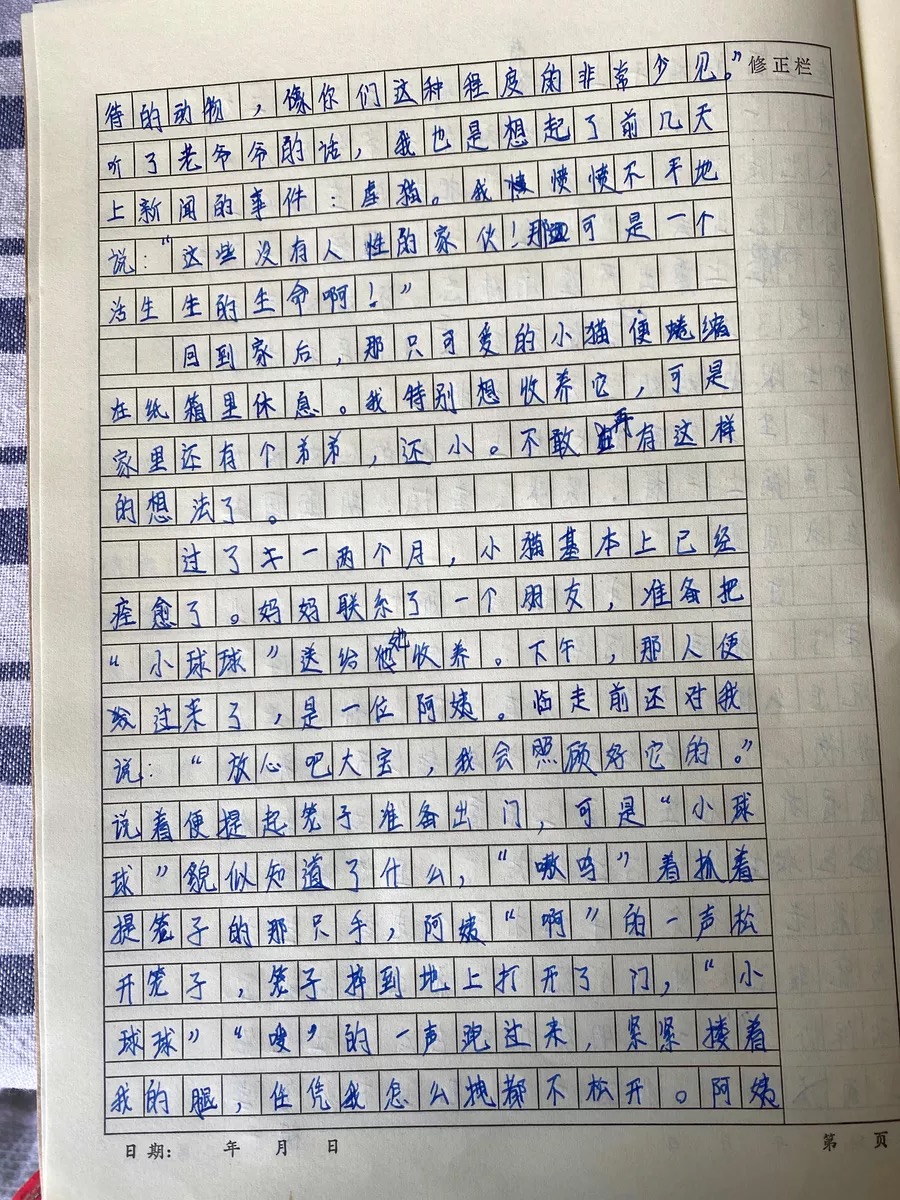 待的动物，像你们这种程度的非常少见。”
修正栏
听了老爷爷的话，我也是想起了前几天
上新闻的事件：虐猫。我愤愤不平地
说：“这些没有人性的家伙！那可是一个
活生生的生命啊！”
回到家后，那只可爱的小猫便蜷缩
在纸箱里休息。我特别想收养它，可是
家里还有个弟弟，还小。不敢再有这样
的想法了。
过了一两个月，小猫基本上已经
痊愈了。妈妈联系了一个朋友，准备把
“小球球”送给她收养。下午，那人便
过来了，是一位阿姨。临走前还对我
说：“放心吧大宝，我会照顾好它的。”
说着便提起笼子准备出门，可是“小球
球”貌似知道了什么，“嗷呜”着抓着
提笼子的那只手，阿姨“啊”的一声松
开笼子，笼子摔到地上打开了门，“小
球球”“嗖”的一声跑过来，紧紧搂着
我的腿，任凭我怎么拽都不松开。阿姨
日期： 年 月 日
第 页